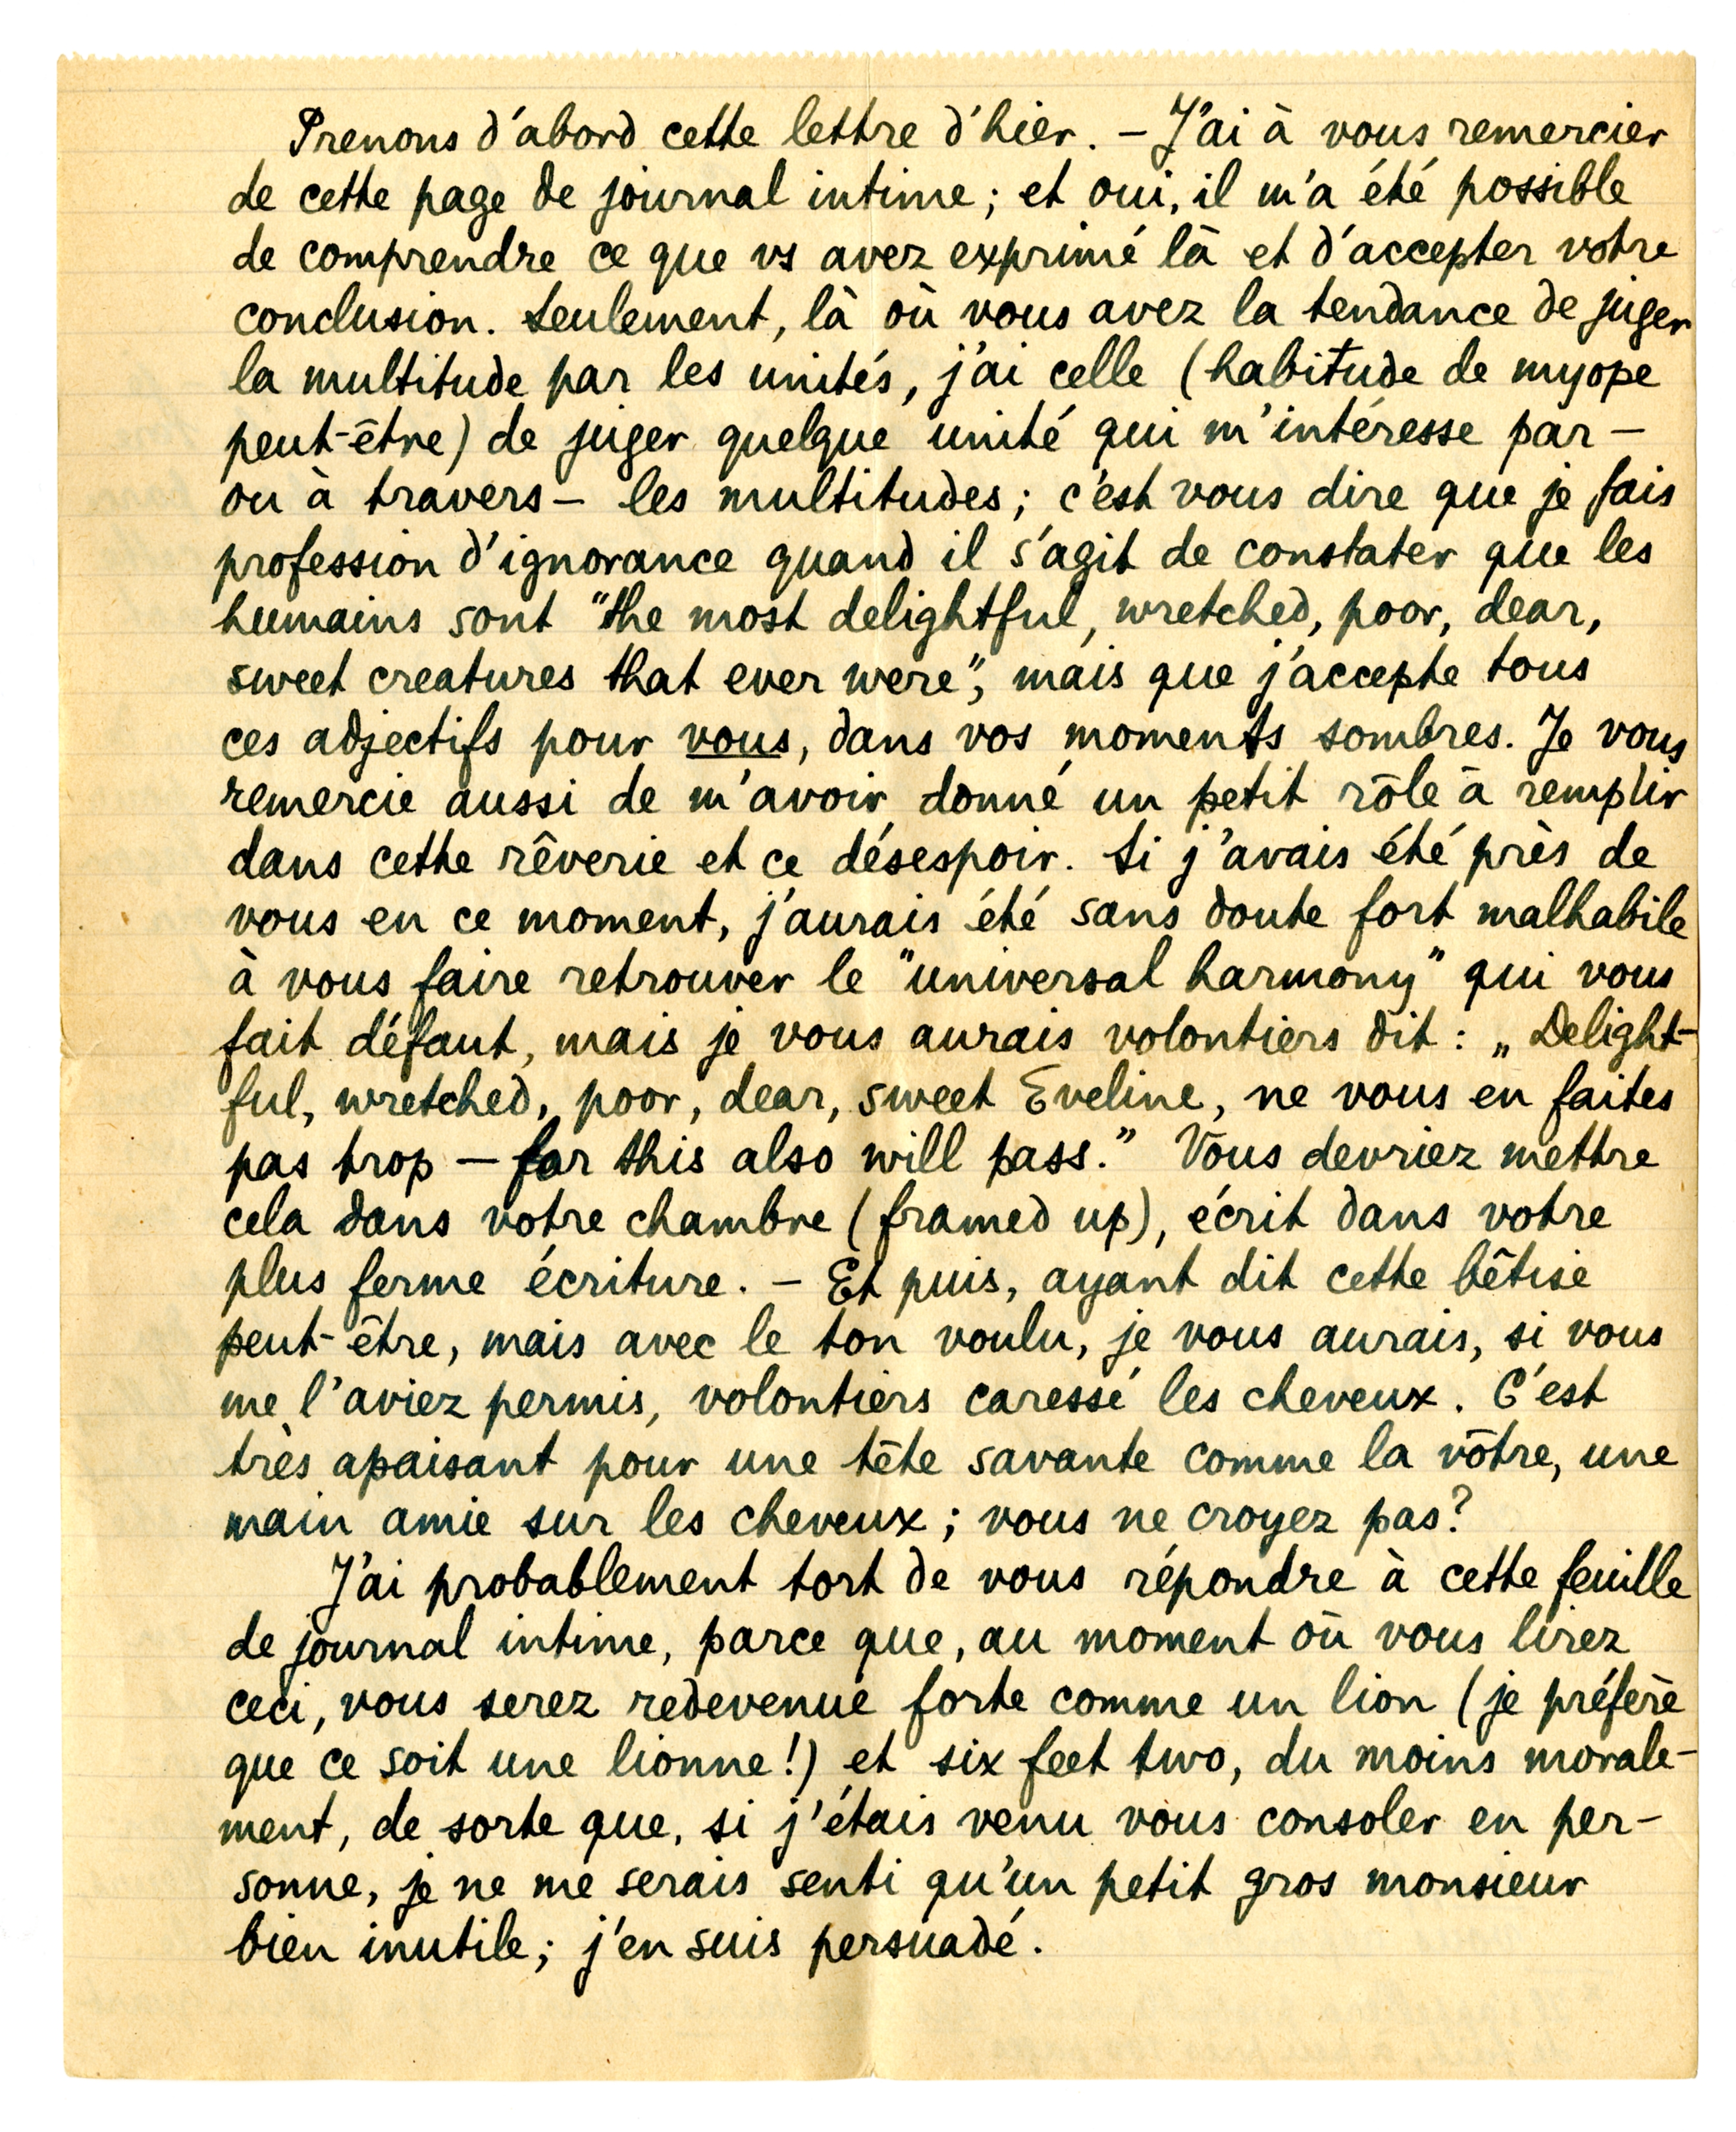 Prenons d'abord cette lettre d'hier. – J'ai à vous remercier
de cette page de journal intime; et oui, il m'a été possible
de comprendre ce que vs avez exprimé là et d'accepter votre
conclusion. Seulement, là où vous avez la tendance de juger
la multitude par les unités, j'ai celle (habitude de myope
peut-être) de juger quelque unité qui m'intéresse par –
ou à travers – les multitudes; c'est vous dire que je fais
profession d'ignorance quand il s'agit de constater que les
humains sont "the most delightful, wretched, poor, dear,
sweet creatures that ever were", mais que j'accepte tous
ces adjectifs pour vous, dans vos moments sombres. Je vous
remercie aussi de m'avoir donné un petit rôle à remplir
dans cette rêverie et ce désespoir. Si j'avais été près de
vous en ce moment, j'aurais été sans doute fort malhabile
à vous faire retrouver le "universal harmony" qui vous
fait défaut, mais je vous aurais volontiers dit : „Delight-
ful, wretched, poor, dear, sweet Eveline, ne vous en faites
pas trop – for this also will pass." Vous devriez mettre
cela dans votre chambre (framed up), écrit dans votre
plus ferme écriture. – Et puis, ayant dit cette bêtise
peut-être, mais avec le ton voulu, je vous aurais, si vous
me l'aviez permis, volontiers caressé les cheveux. C'est
très apaisant pour une tête savante comme la vôtre, une
main amie sur les cheveux; vous ne croyez pas?
J'ai probablement tort de vous répondre à cette feuille
de journal intime, parce que, au moment où vous lirez
ceci, vous serez redevenue forte comme un lion (je préfère
que ce soit une lionne!) et six feet two, du moins morale-
ment, de sorte que, si j'étais venu vous consoler en per-
sonne, je ne me serais senti qu'un petit gros monsieur
bien inutile; j'en suis persuadé.